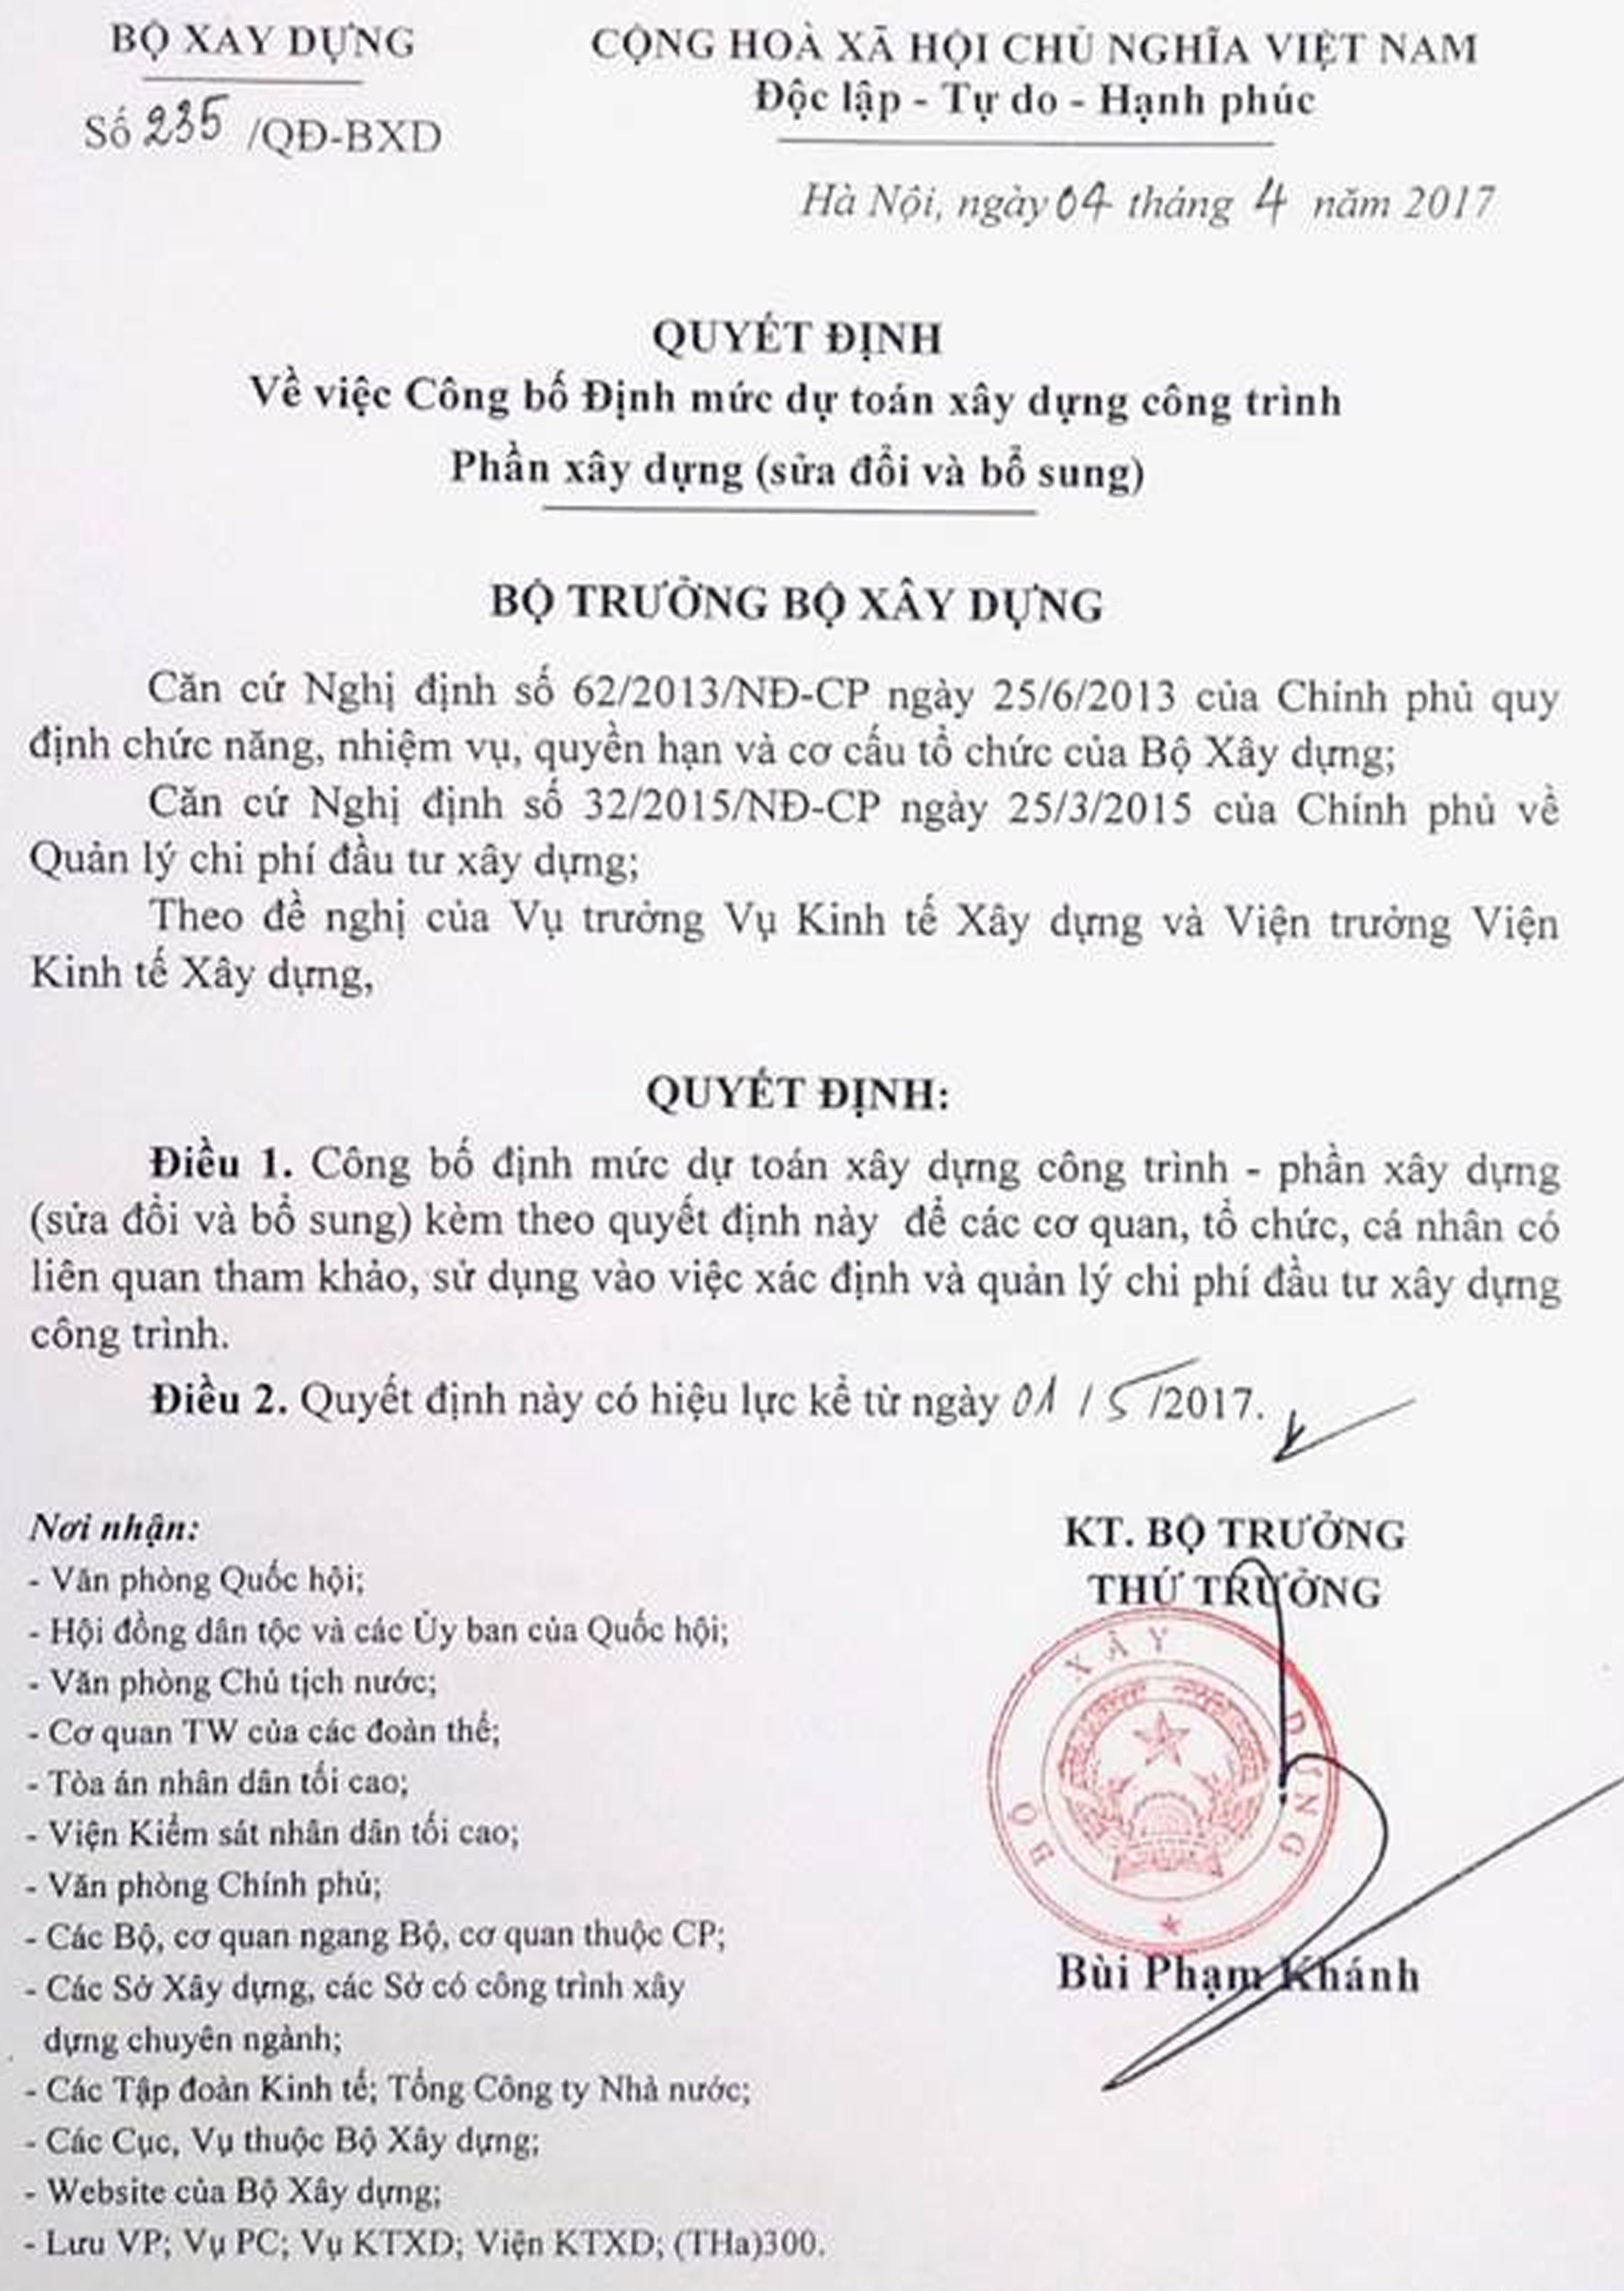 BỘ XAY DỰNG
CỘNG HOÀ XÃ HỘI CHỦ NGHĨA VIỆT NAM
Độc lập - Tự do - Hạnh phúc
Số 235 /QĐ-BXD
Hà Nội, ngày 04 tháng 4 năm 2017
QUYẾT ĐỊNH
Về việc Công bố Định mức dự toán xây dựng công trình
Phần xây dựng (sửa đổi và bổ sung)
BỘ TRƯỞNG BỘ XÂY DỰNG
Căn cứ Nghị định số 62/2013/NĐ-CP ngày 25/6/2013 của Chính phủ quy
định chức năng, nhiệm vụ, quyền hạn và cơ cấu tổ chức của Bộ Xây dựng;
Căn cứ Nghị định số 32/2015/NĐ-CP ngày 25/3/2015 của Chính phủ về
Quản lý chi phí đầu tư xây dựng;
Theo đề nghị của Vụ trưởng Vụ Kinh tế Xây dựng và Viện trưởng Viện
Kinh tế Xây dựng,
QUYẾT ĐỊNH:
Điều 1. Công bố định mức dự toán xây dựng công trình - phần xây dựng
(sửa đổi và bổ sung) kèm theo quyết định này để các cơ quan, tổ chức, cá nhân có
liên quan tham khảo, sử dụng vào việc xác định và quản lý chi phí đầu tư xây dựng
công trình.
Điều 2. Quyết định này có hiệu lực kể từ ngày 01 / 5 /2017.
Nơi nhận:
- Văn phòng Quốc hội;
- Hội đồng dân tộc và các Ủy ban của Quốc hội;
- Văn phòng Chủ tịch nước;
- Cơ quan TW của các đoàn thể;
- Tòa án nhân dân tối cao;
- Viện Kiểm sát nhân dân tối cao;
- Văn phòng Chính phủ;
- Các Bộ, cơ quan ngang Bộ, cơ quan thuộc CP;
- Các Sở Xây dựng, các Sở có công trình xây
dựng chuyên ngành;
- Các Tập đoàn Kinh tế; Tổng Công ty Nhà nước;
- Các Cục, Vụ thuộc Bộ Xây dựng;
- Website của Bộ Xây dựng;
- Lưu VP; Vụ PC; Vụ KTXD; Viện KTXD; (THa)300.
KT. BỘ TRƯỞNG
THỨ TRƯỞNG
BỘ XÂY DỰNG
Bùi Phạm Khánh